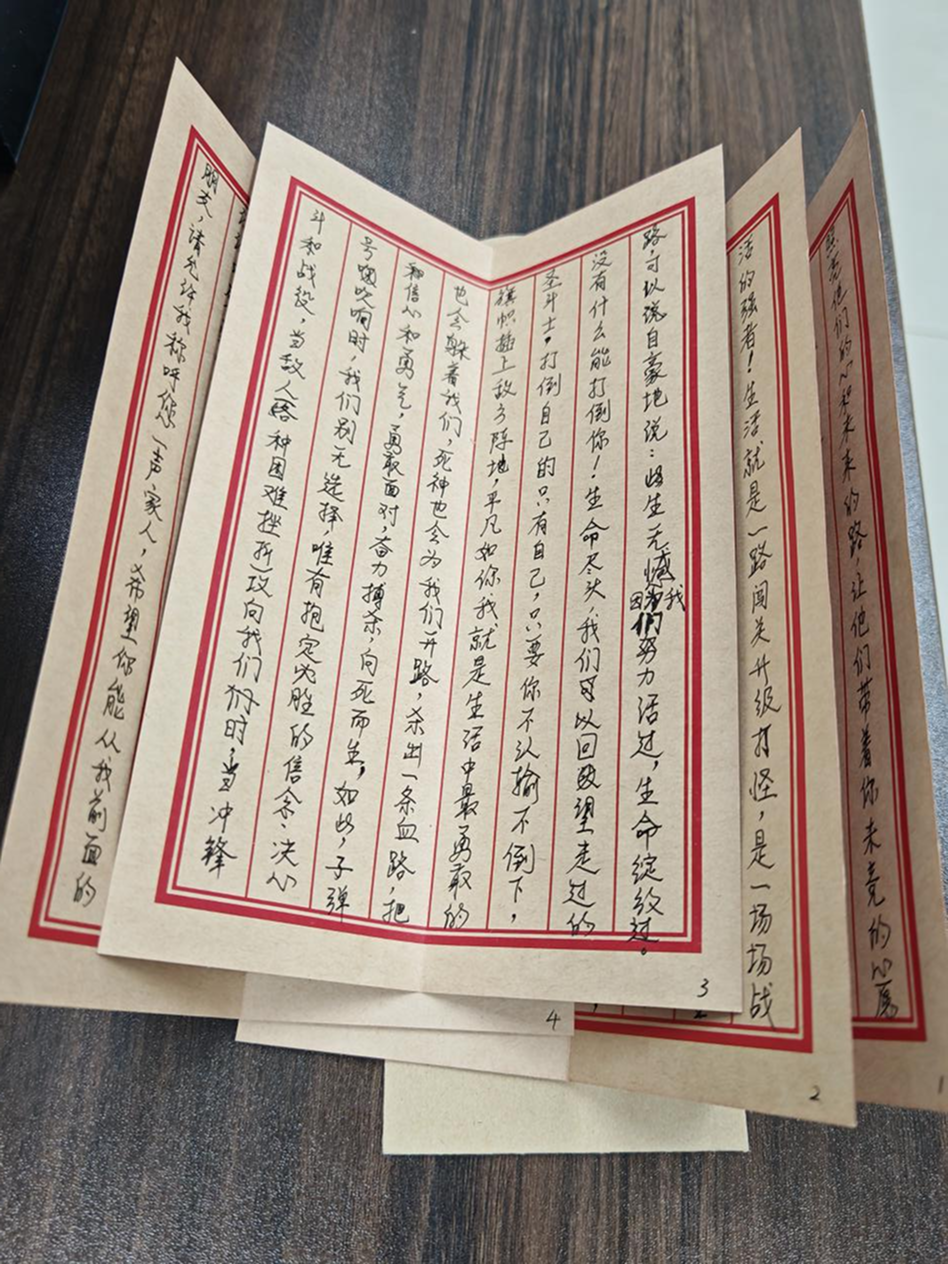 照亮他们的心和未来的路,让他们带着你未竟的心愿
1
活的强者!生活就是一路闯关升级打怪,是一场场战
2
斗和战役,当敌人各种困难挫折攻向我们们时,当冲锋
号吹响时,我们别无选择,唯有抱定必胜的信念、决心
和信心和勇气,勇敢面对,奋力搏杀,向死而生,如此,子弹
也会躲着我们,死神也会为我们开路,杀出一条血路,把
旗帜插上敌方阵地,平凡如你我就是生活中最勇敢的
圣斗士。打倒自己的只有自己,只要你不认输不倒下,
没有什么能打倒你!生命尽头,我们可以回望走过的
路,可以说自豪地说:此生无憾因为我们努力活过,生命绽放过。
3
朋友,请允许我称呼您一声家人,希望你能从我前面的
4